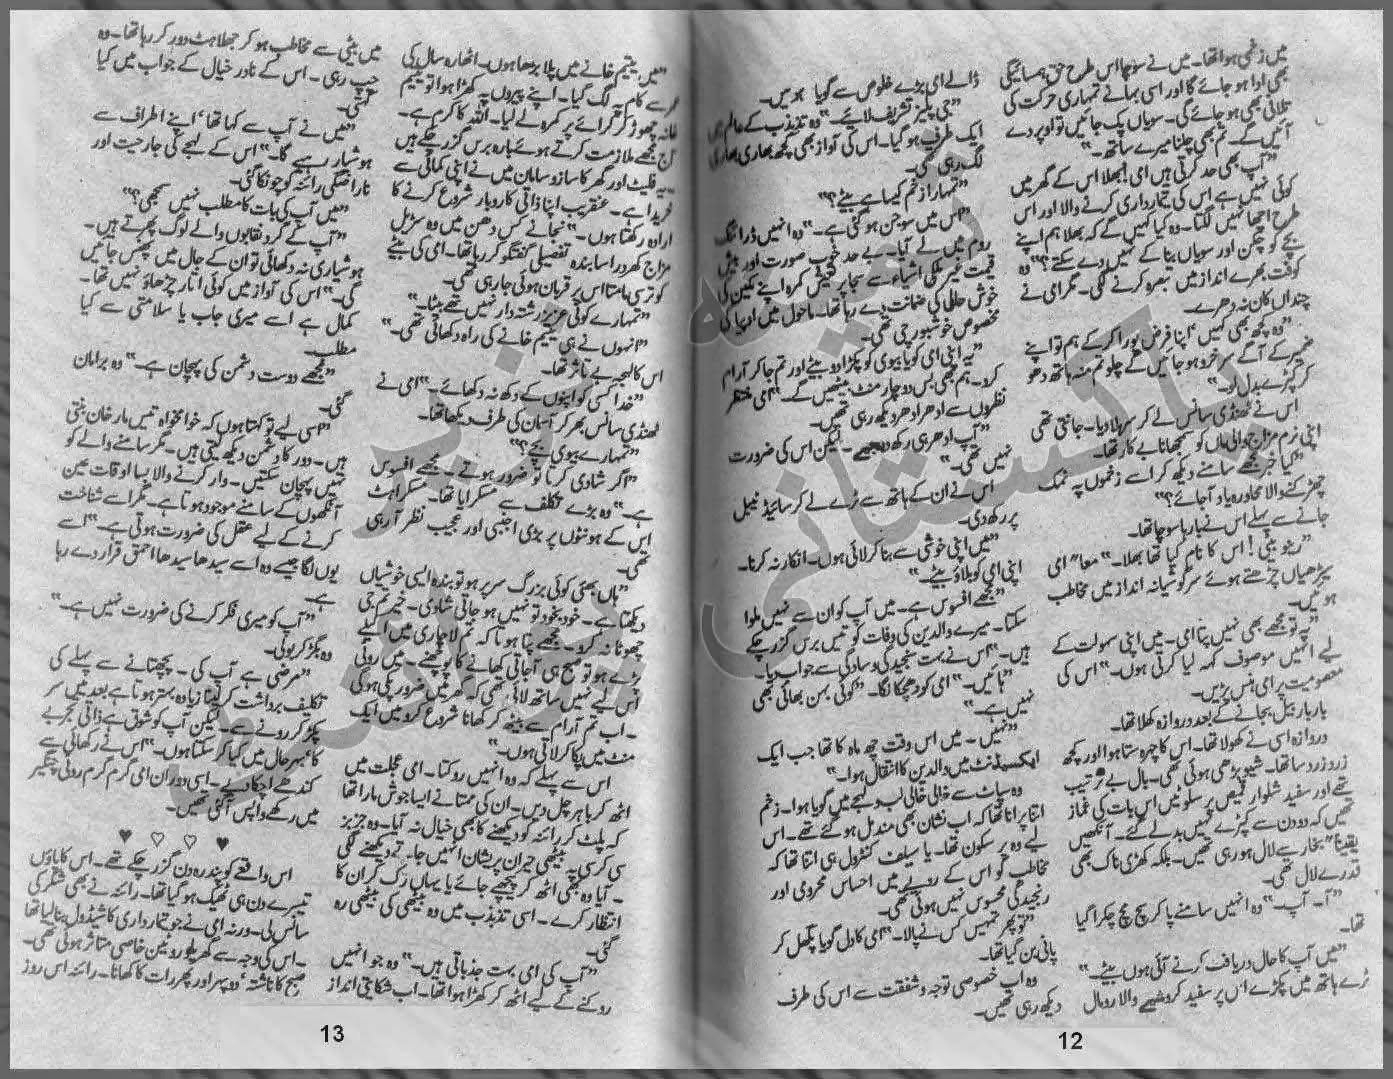 میں زخمی ہوا تھا۔ میں نے سوچا اس طرح حق ہمسائیگی
بھی ادا ہو جائے گا اور اسی بہانے تمہاری حرکت کی
تلافی بھی ہو جائے گی۔ سویاں پک جائیں تو اوپر دے
آئیں گے۔ تم بھی چلنا میرے ساتھ۔"
"آپ بھی حد کرتی ہیں امی! بھلا اس کے گھر میں
کوئی نہیں ہے اس کی تیمارداری کرنے والا اور اس
طرح اچھا نہیں لگتا۔ وہ کیا کہیں گے کہ بھلا ہم اپنے
بچے کو چکن اور سویاں بنا کے نہیں دے سکتے؟" وہ
کوفت بھرے انداز میں تبصرہ کرنے لگی۔ مگر امی نے
چنداں کان نہ دھرے۔
"وہ کچھ بھی کہیں، اپنا فرض پورا کر کے ہم تو اپنے
ضمیر کے آگے سرخرو ہو جائیں گے چلو تم منہ ہاتھ دھو
کر کپڑے بدل لو۔"
اس نے ٹھنڈی سانس لے کر سر ہلا دیا۔ جانتی تھی
اپنی نرم مزاج والی ماں کو سمجھانا بے کار تھا۔
"کیا خبر مجھے سامنے دیکھ کر اسے زخموں پہ نمک
چھڑکنے والا محاورہ یاد آجائے؟"
جانے سے پہلے اس نے بارہا سوچا تھا۔
"رینو بیٹی! اس کا نام کیا تھا بھلا۔" معا" امی
سیڑھیاں چڑھتے ہوئے سرگوشیانہ انداز میں مخاطب
ہوئیں۔
"یہ تو مجھے بھی نہیں پتا امی۔ میں اپنی سہولت کے
لیے انہیں موصوف کہہ لیا کرتی ہوں۔" اس کی
معصومیت پر امی ہنس پڑیں۔
بار بار بیل بجانے کے بعد دروازہ کھلا تھا۔
دروازہ اسی نے کھولا تھا۔ اس کا چہرہ ستا ہوا اور کچھ
زرد زرد سا تھا۔ شیو بڑھی ہوئی تھی۔ بال بے ترتیب
تھے اور سفید شلوار قمیص پر سلوٹیں اس بات کی غماز
تھیں کہ دو دن سے کپڑے نہیں بدلے گئے۔ آنکھیں
یقیناً" بخار سے لال ہو رہی تھیں۔ بلکہ کھڑی ناک بھی
قدرے لال تھی۔
"آ۔ آپ۔" وہ انہیں سامنے پا کر سچ مچ چکرا گیا
تھا۔
"میں آپ کا حال دریافت کرنے آئی ہوں بیٹے۔"
ٹرے ہاتھ میں پکڑے اس پر سفید کروشیے والا رومال
ڈالے امی بڑے خلوص سے گویا ہوئیں۔
"جی پلیز تشریف لائیے۔" وہ تذبذب کے عالم میں
ایک طرف ہو گیا۔ اس کی آواز بھی کچھ بھاری بھاری
لگ رہی تھی۔
"تمہارا زخم کیسا ہے بیٹے؟"
"اس میں سوجن ہو گئی ہے۔" وہ انہیں ڈرائنگ
روم میں لے آیا۔ بے حد خوب صورت اور بیش
قیمت غیر ملکی اشیاء سے سجا پر تعیش کمرہ اپنے مکین کی
خوش حالی کی ضمانت دے رہا تھا۔ ماحول میں اوپیا کی
مخصوص خوشبو رچی تھی۔
"یہ اپنی امی کو یا بیوی کو پکڑا دو بیٹے اور تم جا کر آرام
کرو۔ ہم بھی بس دو چار منٹ بیٹھیں گے۔" امی منتظر
نظروں سے ادھر ادھر دیکھ رہی تھیں۔
"آپ ادھر ہی رکھ دیجیے۔ لیکن اس کی ضرورت
نہیں تھی۔"
اس نے ان کے ہاتھ سے ٹرے لے کر سائیڈ ٹیبل
پر رکھ دی۔
"میں اپنی خوشی سے بنا کر لائی ہوں۔ انکار نہ کرنا۔
اپنی امی کو بلاؤ بیٹے۔"
"مجھے افسوس ہے۔ میں آپ کو ان سے نہیں ملوا
سکتا۔ میرے والدین کی وفات کو تیس برس گزر چکے
ہیں۔" اس نے بہت سنجیدگی و سادگی سے جواب دیا۔
"ہائیں۔" امی کو دھچکا لگا۔ "کوئی بہن بھائی بھی
نہیں ہے۔"
"نہیں۔ میں اس وقت چھ ماہ کا تھا جب ایک
ایکسیڈنٹ میں والدین کا انتقال ہوا۔"
وہ سپاٹ سے خالی خالی لب و لہجے میں گویا ہوا۔ زخم
اتنا پرانا تھا کہ اب نشان بھی مندمل ہو گئے تھے۔ اس
لیے وہ پر سکون تھا۔ یا سیلف کنٹرول ہی اتنا تھا کہ
مخاطب کو اس کے رویے میں احساس محرومی اور
رنجیدگی محسوس نہیں ہوئی تھی۔
"تو پھر تمہیں کس نے پالا۔" امی کا دل گویا پگھل کر
پانی بن گیا تھا۔
وہ اب خصوصی توجہ و شفقت سے اس کی طرف
دیکھ رہی تھیں۔
12
"میں، یتیم خانے میں پلا بڑھا ہوں۔ اٹھارہ سال کی
عمر سے کام پہ لگ گیا۔ اپنے پیروں پہ کھڑا ہوا تو یتیم
خانہ چھوڑ کر کرائے پر کمرہ لے لیا۔ اللہ کا کرم ہے۔
آج مجھے ملازمت کرتے ہوئے بارہ برس گزر چکے ہیں
یہ فلیٹ اور گھر کا ساز و سامان میں نے اپنی کمائی سے
خریدا ہے۔ عنقریب اپنا ذاتی کاروبار شروع کرنے کا
ارادہ رکھتا ہوں۔" نجانے کس دھن میں وہ سڑیل
مزاج کھردرا سا بندہ تفصیلی گفتگو کر رہا تھا۔ امی کی بیٹے
کو ترسی مامتا اس پر قربان ہوئی جا رہی تھی۔
"تمہارے کوئی عزیز رشتہ دار نہیں تھے بیٹا۔"
"انہوں نے ہی یتیم خانے کی راہ دکھائی تھی۔"
اس کا لہجہ بے تاثر تھا۔
"خدا کسی کو اپنوں کے دکھ نہ دکھائے۔" امی نے
ٹھنڈی سانس بھر کر آسمان کی طرف دیکھا تھا۔
"تمہارے بیوی بچے؟"
"اگر شادی کرتا تو ضرور ہوتے۔ مجھے افسوس
ہے۔" وہ بڑے تکلف سے مسکرایا تھا۔ مسکراہٹ
اس کے ہونٹوں پر بڑی اجنبی اور عجیب نظر آرہی
تھی۔
"ہاں بھئی کوئی بزرگ سر پر ہو تو بندہ ایسی خوشیاں
دیکھتا ہے۔ خود بخود تو نہیں ہو جاتی شادی۔ خیر تم جی
چھوٹا نہ کرو۔ مجھے پتا ہوتا کہ تم لاچاری میں اکیلے
پڑے ہو تو صبح ہی آجاتی کھانے کا پوچھنے۔ میں روٹی
اس لیے نہیں ساتھ لائی تھی کہ گھر میں ضرور پکی ہو گی
۔ اب تم آرام سے بیٹھ کر کھانا شروع کرو میں ایک
منٹ میں پکا کر لاتی ہوں۔"
اس سے پہلے کہ وہ انہیں روکتا۔ امی عجلت میں
اٹھ کر باہر چل دیں۔ ان کی ممتا نے ایسا جوش مارا تھا
کہ پلٹ کر رائنہ کو دیکھنے کا بھی خیال نہ آیا۔ وہ جزبز
سی کرسی پہ بیٹھی حیران پریشان انہیں جاتے دیکھنے لگی
۔ آیا وہ بھی اٹھ کر پیچھے جائے یا یہاں رک کر ان کا
انتظار کرے۔ اسی تذبذب میں وہ بیٹھی کی بیٹھی رہ
گئی۔
"آپ کی امی بہت جذباتی ہیں۔" وہ جو انہیں
روکنے کے لیے اٹھ کر کھڑا ہوا تھا۔ اب شکایتی انداز
میں بیٹی سے مخاطب ہو کر جھلاہٹ دور کر رہا تھا۔ وہ
چپ رہی۔ اس کے نادر خیال کے جواب میں کیا
کہتی۔
"میں نے آپ سے کہا تھا، اپنے اطراف سے
ہوشیار رہیے گا۔" اس کے لہجے کی جارحیت اور
ناراضگی رائنہ کو چونکا گئی۔
"میں آپ کی بات کا مطلب نہیں سمجھی؟"
"آپ کے گرد نقابوں والے لوگ پھرتے ہیں۔
ہوشیاری نہ دکھائی تو ان کے جال میں پھنس جائیں
گی۔" اس کی آواز میں کوئی اتار چڑھاؤ نہیں تھا۔
کمال ہے اسے میری جاب یا سلامتی سے کیا
مطلب۔
"مجھے دوست دشمن کی پہچان ہے۔" وہ برا مان
گئی۔
"اسی لیے تو کہتا ہوں کہ خوامخواہ تیس مار خان بنتی
ہیں۔ دور کا دشمن دیکھ لیتی ہیں۔ مگر سامنے والے کو
نہیں پہچان سکتیں۔ وار کرنے والا بسا اوقات عین
آنکھوں کے سامنے موجود ہوتا ہے۔ مگر اسے شناخت
کرنے کے لیے عقل کی ضرورت ہوتی ہے۔" اسے
یوں لگا جیسے وہ اسے سیدھا سیدھا احمق قرار دے رہا
ہے۔
"آپ کو میری فکر کرنے کی ضرورت نہیں ہے۔"
وہ بگڑ کر بولی۔
"مرضی ہے آپ کی۔ پچھتانے سے پہلے کی
تکلیف برداشت کر لینا زیادہ بہتر ہوتا ہے بعد میں سر
پکڑ کر رونے سے۔ لیکن آپ کو شوق ہے ذاتی تجربے
کا، بہرحال میں کیا کر سکتا ہوں۔" اس نے رکھائی سے
کندھے اچکا دیے۔ اسی دوران امی گرم گرم روٹی چنگیر
میں رکھے واپس آگئی تھیں۔
♥ ♡ ♡ ♥
اس واقعے کو پندرہ دن گزر چکے تھے۔ اس کا پاؤں
تیسرے دن ہی ٹھیک ہو گیا تھا۔ رائنہ نے بھی شکر کی
سانس لی۔ ورنہ امی نے جو تیمارداری کا شیڈول بنا لیا تھا
۔ اس کی وجہ سے گھریلو روٹین خاصی متاثر ہوئی تھی۔
صبح کا ناشتہ، دوپہر اور پھر رات کا کھانا۔ رائنہ اس روز
13